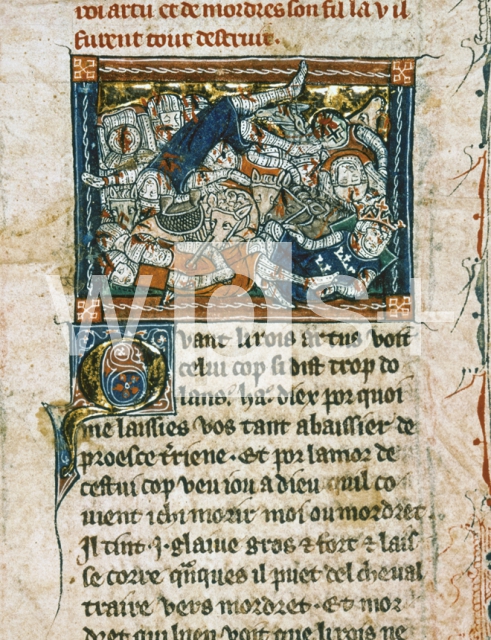 roi artu et de mordres son fil la v il
furent tout destruit.
Quant li rois artus voit
celui cop si dist trop do
lans. ha. diex por quoi
me laissies vos tant abaissier de
proesce t'riene. Et por lamor de
cestui cop veu iou a dieu quil co
uient ichi morir moi ou mordret.
Il tint .j. glaiue gros & fort & lais
se corre qnques il puet del cheual
traire vers mordret. Et mor
dret qui bien voit que li rois ne